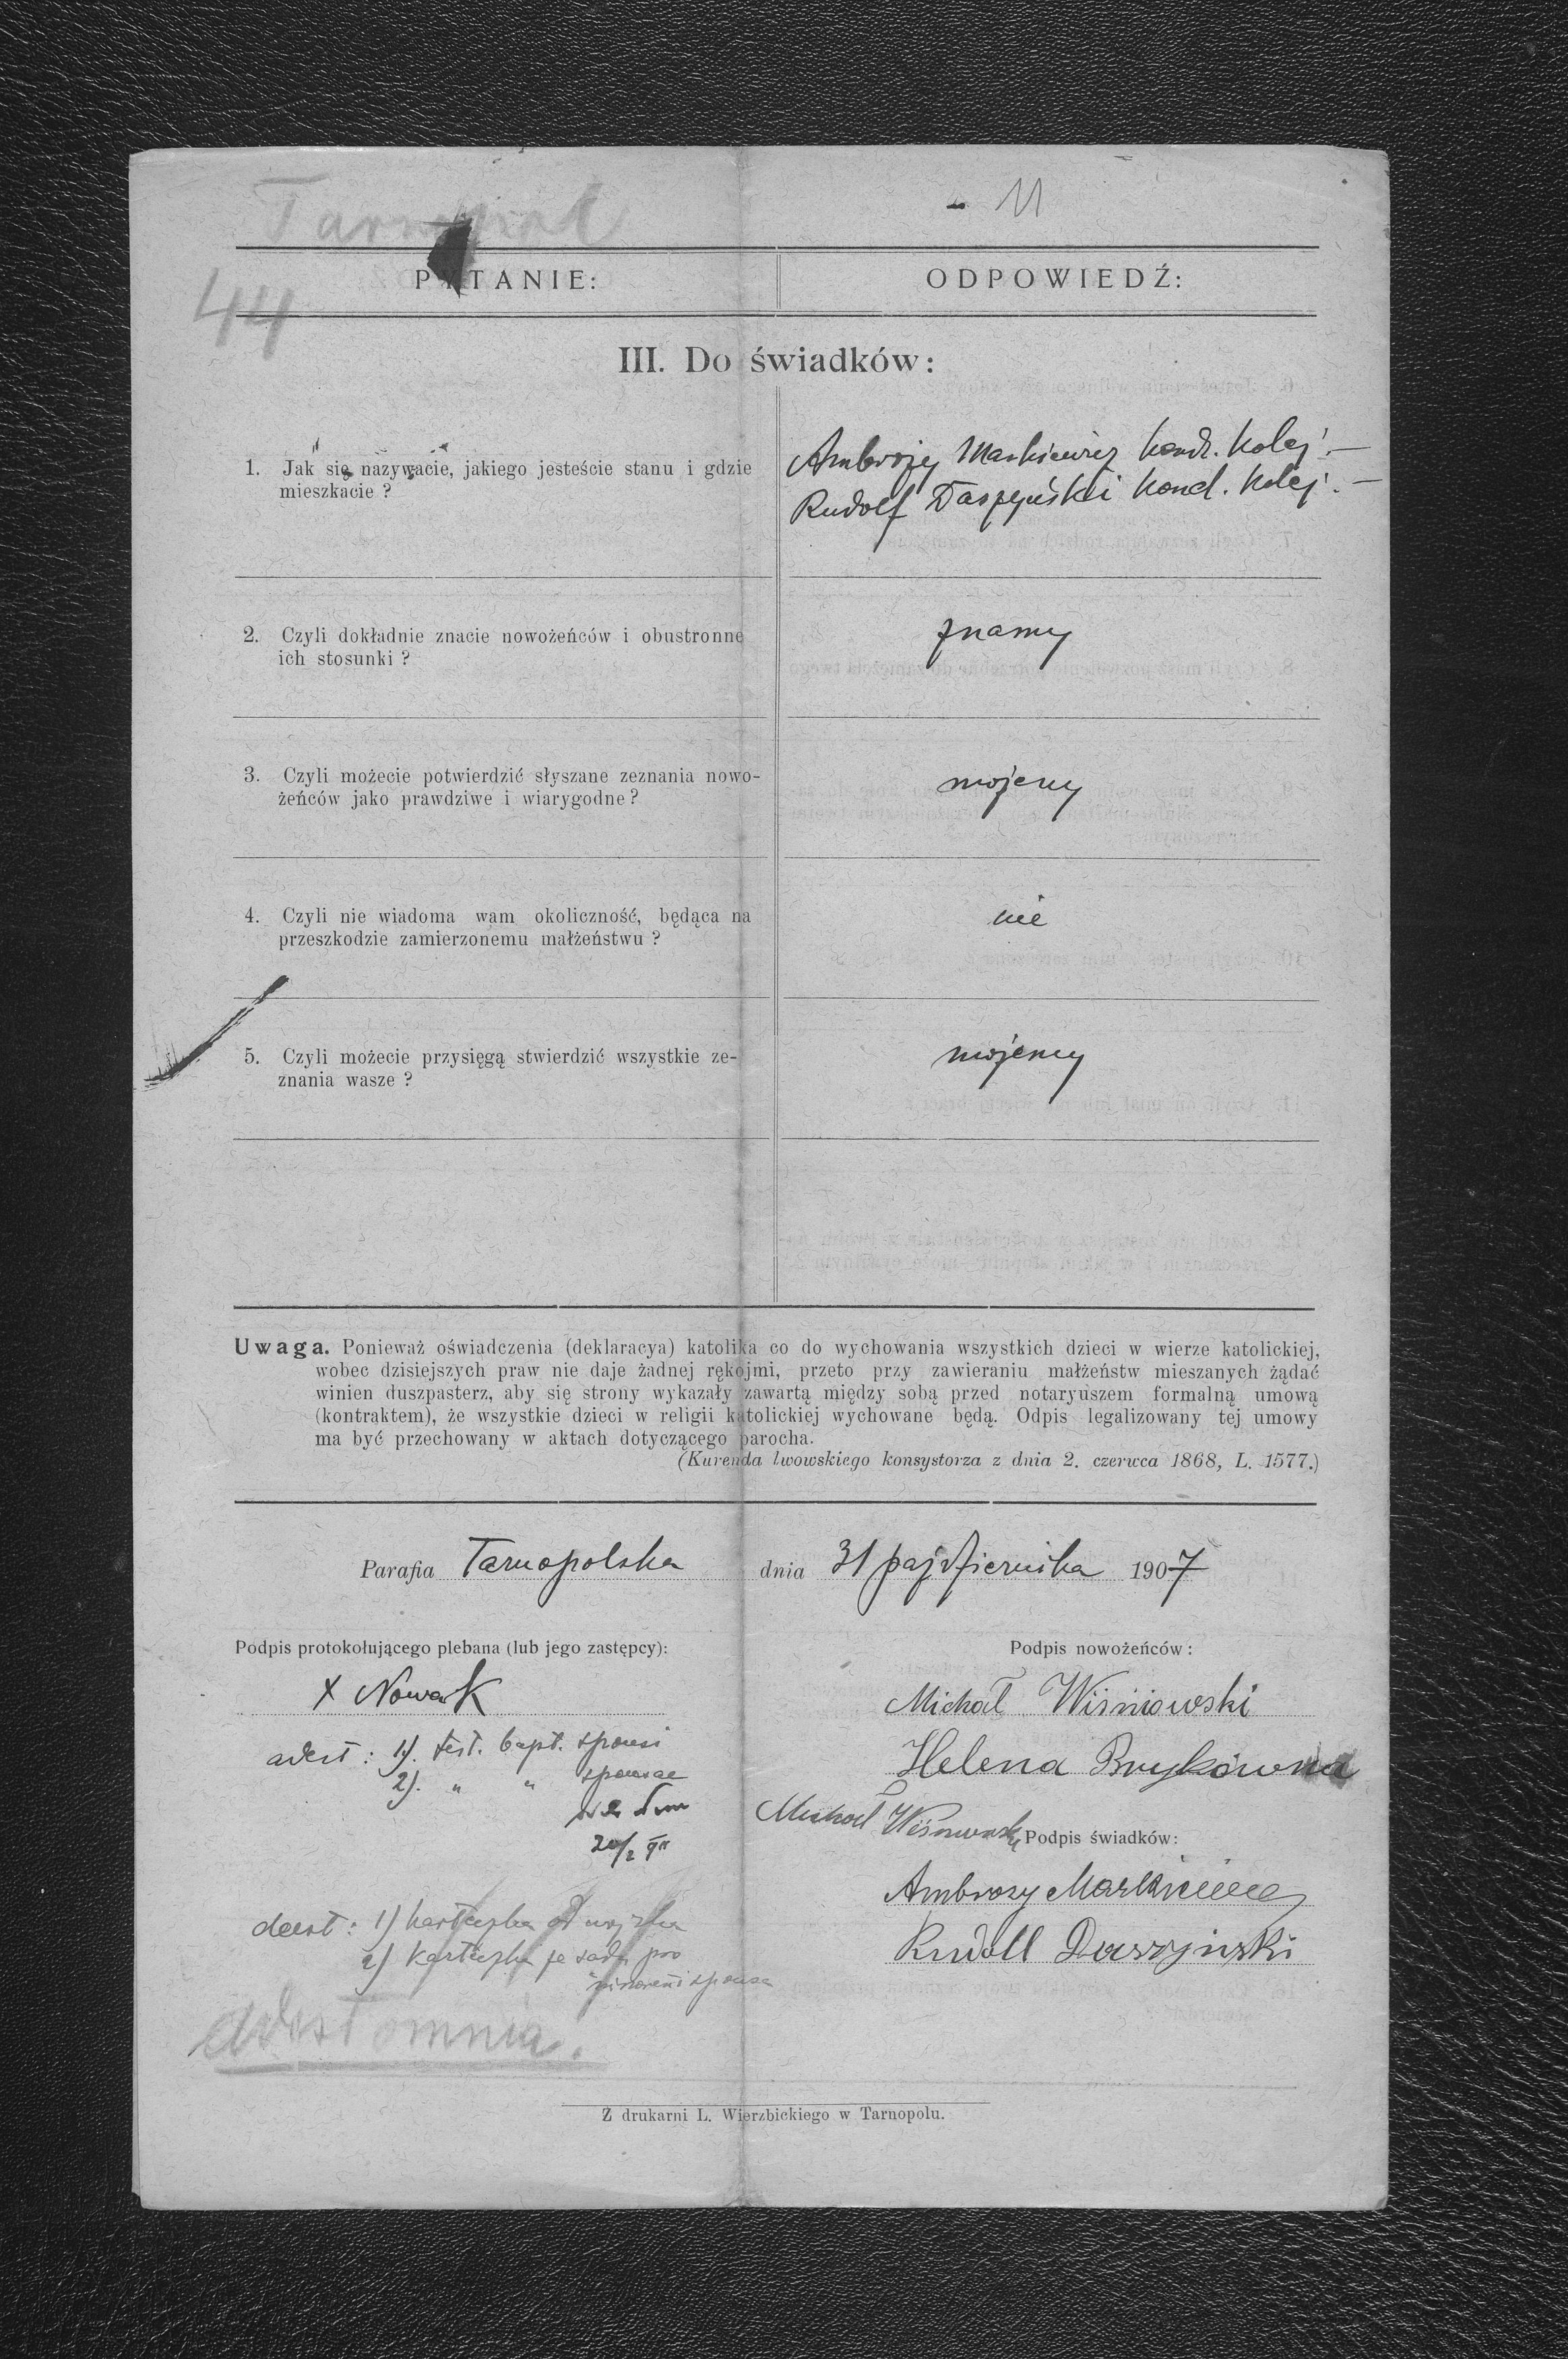 Tarnopol
- 11
44
PYTANIE:
ODPOWIEDŹ:
III. Do świadków:
1. Jak się nazywacie, jakiego jesteście stanu i gdzie
mieszkacie ?
Ambroży Markiewicz kond. kolej. —
Rudolf Daszyński kond. kolej. —
2. Czyli dokładnie znacie nowożeńców i obustronne
ich stosunki ?
znamy
3. Czyli możecie potwierdzić słyszane zeznania nowo-
żeńców jako prawdziwe i wiarygodne?
możemy
4. Czyli nie wiadoma wam okoliczność, będąca na
przeszkodzie zamierzonemu małżeństwu ?
nie
5. Czyli możecie przysięgą stwierdzić wszystkie ze-
znania wasze ?
możemy
Uwaga. Ponieważ oświadczenia (deklaracya) katolika co do wychowania wszystkich dzieci w wierze katolickiej,
wobec dzisiejszych praw nie daje żadnej rękojmi, przeto przy zawieraniu małżeństw mieszanych żądać
winien duszpasterz, aby się strony wykazały zawartą między sobą przed notaryuszem formalną umową
(kontraktem), że wszystkie dzieci w religii katolickiej wychowane będą. Odpis legalizowany tej umowy
ma być przechowany w aktach dotyczącego parocha.
(Kurenda lwowskiego konsystorza z dnia 2. czerwca 1868, L. 1577.)
Parafia Tarnopolska dnia 31 października 1907
Podpis protokołującego plebana (lub jego zastępcy):
X Nowak
adest : 1). test. bapt. sponsi
2). " " sponsae
Podpis nowożeńców:
Michał Wiśniowski
Helena Brykówna
Michał Wiśniowski
Podpis świadków:
Ambrozy Markiewicz
Rudolf Daszyński
deest : 1) kartuszka od wojska
2) kartuszka ze sądu pro
sponsa
Adest omnia.
Z drukarni L. Wierzbickiego w Tarnopolu.